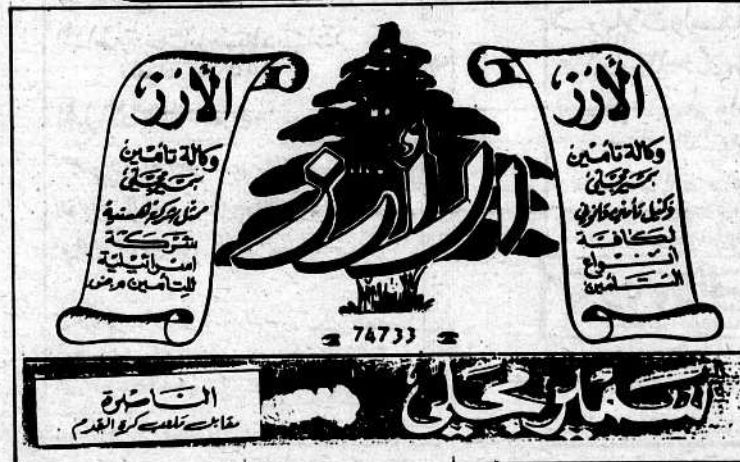 الأرز
وكالة تأمين
سمير مجلي
وكيل تأمين قانوني
لكافة
أنواع
التأمين
الأرز
الأرز
وكالة تأمين
سمير مجلي
ممثل
شركة
اسرائيلية
للتأمين م.ض
74733
سمير مجلي
الناصرة
مقابل ملعب كرة القدم